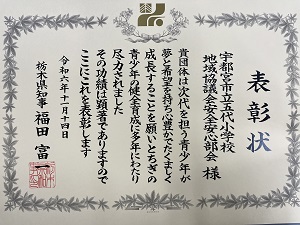 表彰状
宇都宮市立五代小学校
地域協議会安全安心部会 様
貴団体は次代を担う青少年が
夢と希望を持ち心豊かでたくましく
成長することを願いとちぎの
青少年の健全育成に多年にわたり
尽力されました
その功績は顕著でありますので
ここにこれを表彰します
令和六年十一月十四日
栃木県知事 福田富一